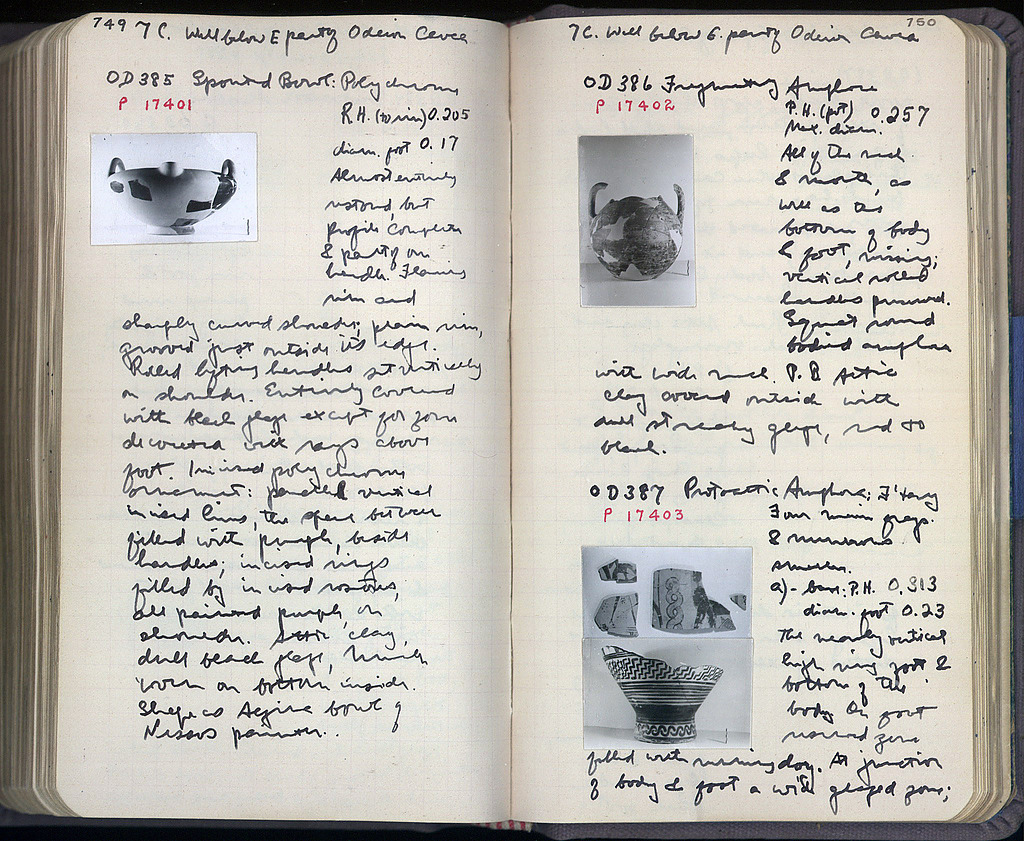 749 7C. Well below E part of Odeion Cavea
OD 385 Spouted Bowl: Polychrome
P 17401
P.H. (to rim) 0.205
diam. foot 0.17
Almost entirely
restored, but
profile complete
& part of one
handle. Flaring
rim and
sharply curved shoulder; plain rim,
grooved just outside its edge.
Rolled lifting handles set vertically
on shoulder. Entirely covered
with black glaze except for zone
decorated with rays above
foot. Incised polychrome
ornament: parallel vertical
incised lines, the space between
filled with purple, beside
handles; incised rings
filled by incised rosettes,
all painted purple, on
shoulder. Attic clay,
dull black glaze, much
worn on bottom inside.
Shape as Aegina bowl of
Nessos painter.
750
7C. Well below E. part of Odeion Cavea
OD 386 Fragmentary Amphora
P 17402
P.H. (pot) 0.257
Max. diam.
All of the neck
& mouth, as
well as the
bottom of body
& foot, missing;
vertical rolled
handles preserved.
Squat round
bodied amphora
with wide neck. Attic
clay covered outside with
dull streaky glaze, red to
black.
OD 387 Protoattic Amphora: F'tary
P 17403
Four main frags.
& numerous
smaller.
a) - base. P.H. 0.313
diam. foot 0.23
The nearly vertical
high ring foot &
bottom of the
body. On foot
reserved zone
filled with running dog. At junction
of body & foot a wide glazed zone;